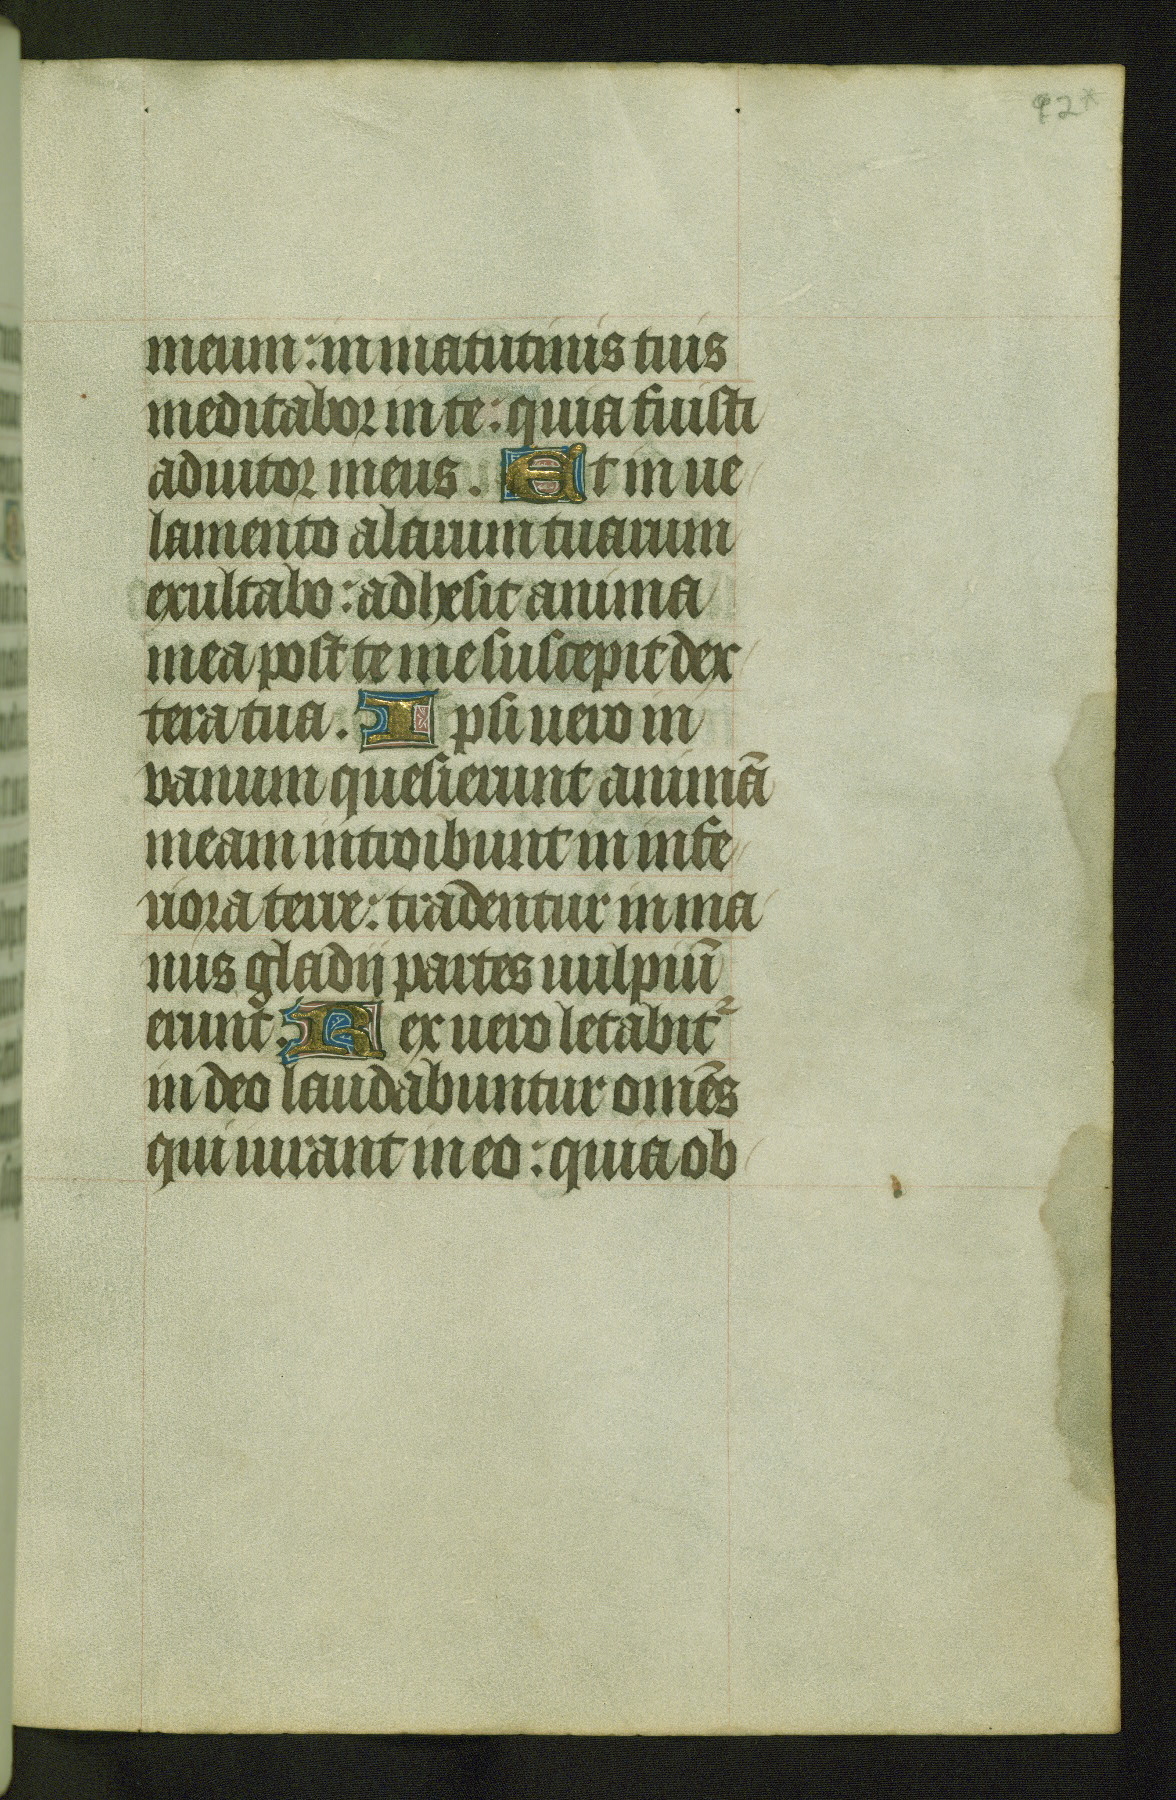 92*
meum: in matutinis tuis
meditabor in te: quia fuisti
adiutor meus. Et in ue
lamento alarum tuarum
exultabo: adhesit anima
mea post te me suscepit dex
tera tua. Ipsi uero in
vanum quesierunt animā
meam introibunt in infe
riora terre: tradentur in ma
nus gladij partes uulpiū
erunt. Rex uero letabit᷑
in deo laudabuntur omēs
qui iurant in eo: quia ob